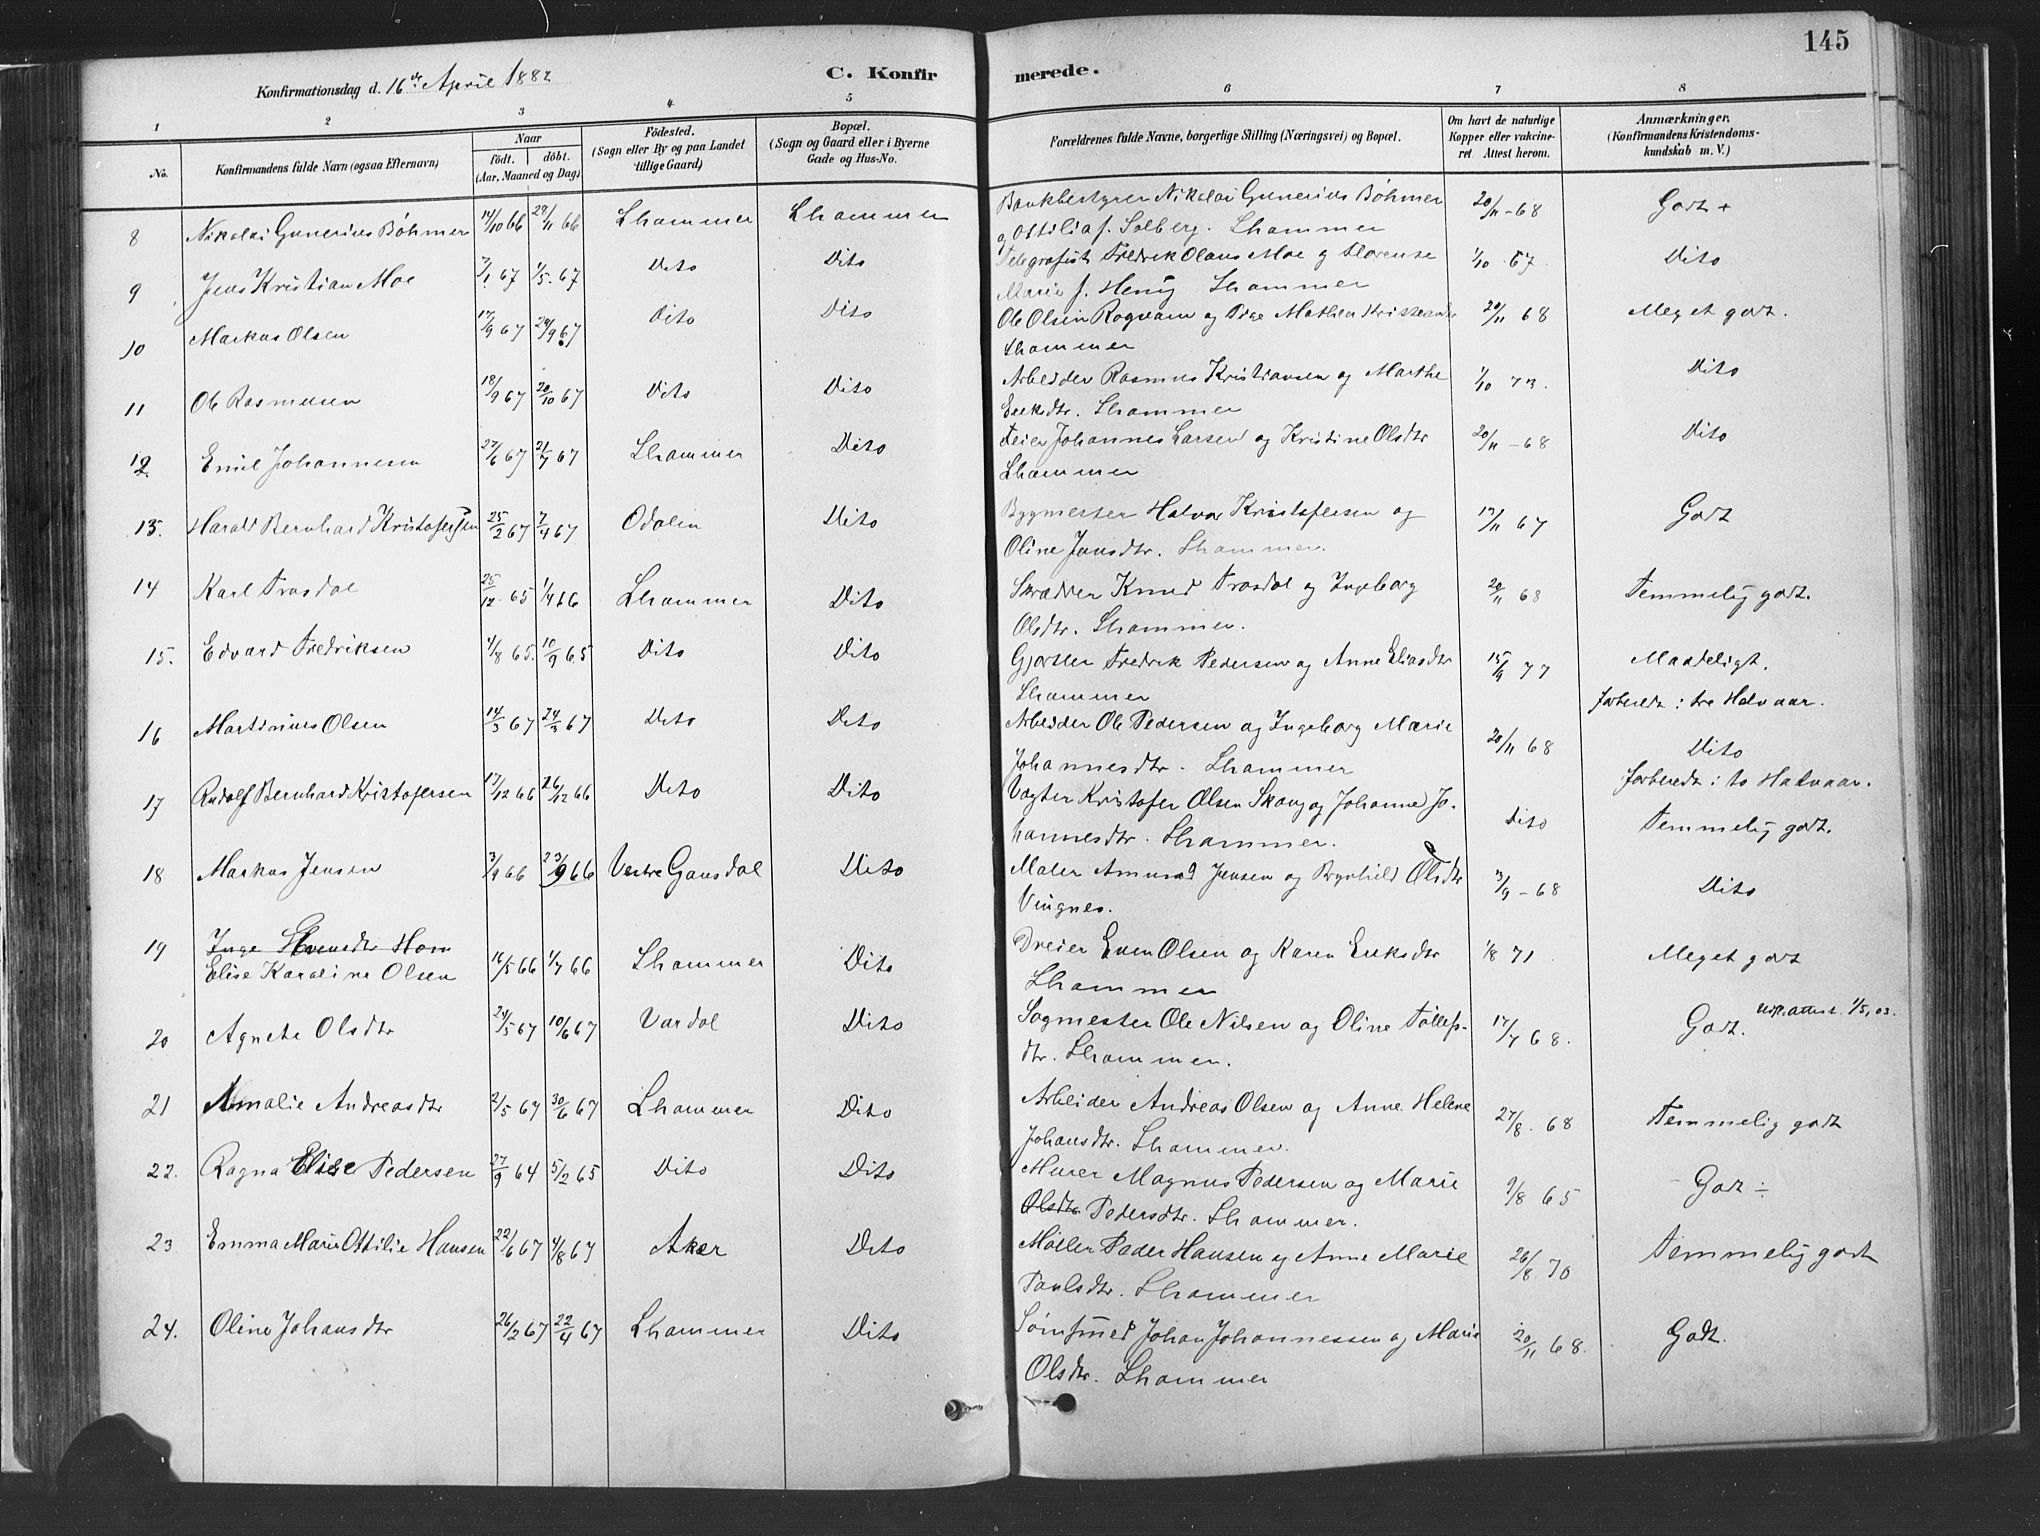 145
C. Konfirmerede.
Konfirmationsdag d. 16de April 1882
1 2 3 4 5 6 7 8
No.
Konfirmandens fulde Navn (ogsaa Efternavn)
Naar
født. døbt.
(Aar, Maaned og Dag)
Fødested.
(Sogn eller By og paa Landet
tillige Gaard)
Bopæl.
(Sogn og Gaard eller i Byerne
Gade og Hus-No.
Forældrenes fulde Navne, borgerlige Stilling (Næringsvei) og Bopæl.
Om havt de naturlige
Kopper eller vakcine-
ret Attest herom.
Anmærkninger.
(Konfirmandens Kristendoms-
kundskab m. V.)
8 Nikolai Gunerius Böhmer 14/10 66 28/11 66 Lhammer Lhammer Bankbestyrer Nikolai Gunerius Böhmer 20/11 - 68 Godt +
og Ottilia f. Solberg. Lhammer
9 Jens Kristian Moe 7/1 67 1/5 67 Dito Dito Telegrafist Fredrik Olaus Moe og Florense 1/10 67 Dito
Marie f. Lhammer
10 Markus Olsen 17/9 67 29/9 67 Dito Dito Ole Olsen og Pige Mathea 20/11 68 Meget godt.
Lhammer
11 Ole Rasmussen 18/9 67 20/10 67 Dito Dito Arbeider Rasmus Kristiansen og Marthe 1/10 73. Dito
Eriksdtr. Lhammer
12 Emil Johannesen 27/6 67 21/7 67 Lhammer Dito Feier Johannes Larsen og Kristine Olsdtr 20/11 - 68 Dito
Lhammer
13. Harald Bernhard Kristofersen 25/2 67 7/4 67 Odalen Dito Bygmester Halvor Kristofersen og 17/11 67 Godt
Oline Jensdtr. Lhammer.
14 Karl Trosdal 25/12 65 1/4 66 Lhammer Dito Skrædder Knud Trosdal og Ingeborg 20/11 68 Temmelig godt.
Olsdtr. Lhammer.
15. Edvard Fredriksen 4/8 65. 10/9 65 Dito Dito Gjørtler Fredrik Pedersen og Anne Eliasdtr 15/9 77 Maadeligt.
Lhammer forberedt i tre Halvaar.
16 Martinius Olsen 14/3 67 24/3 67 Dito Dito Arbeider Ole Pedersen og Ingeborg Marie 20/11 68 Dito
Johannesdtr. Lhammer forberedt i to Halvaar.
17 Rudolf Bernhard Kristofersen 17/12 66 26/12 66 Dito Dito Vægter Kristofer Olsen Skaug og Johanne Jo- Dito Temmelig godt.
hannesdtr. Lhammer.
18 Markus Jensen 3/9 66 23/9 66 Vestre Gausdal Dito Maler Amund Jensen og Brynhild Olsdtr 3/9 - 68 Dito
Vingnes.
19 Inge Evensdtr Hom
Elise Karoline Olsen 16/5 66 1/7 66 Lhammer Dito Dreier Even Olsen og Karen Eriksdtr 1/8 71 Meget godt
Lhammer
20 Agnete Olsdtr 24/5 67 10/6 67 Vardal Dito Sagmester Ole Nilsen og Oline Tollefs- 17/7 68. Godt. Udp. attest. 1/5, 03.
dtr. Lhammer.
21 Amalie Andreasdtr 2/5 67 30/6 67 Lhammer Dito Arbeider Andreas Olsen og Anne Helene 27/8. 68 Temmelig godt
Johansdtr. Lhammer.
22. Ragna Elise Pedersen 27/9 64 5/2 65 Dito Dito Murer Magnus Pedersen og Marie 9/8 65 Godt ÷
Olsdtr Pedersdtr. Lhammer.
23 Emma Marie Ottilie Hansen 22/6 67 4/8 67 Aker Dito Møller Peder Hansen og Anne Marie 26/8 70 Temmelig godt
Paulsdtr. Lhammer
24. Oline Johansdtr 26/2 67 22/4 67 Lhammer Dito Johan Johannessen og Marie 20/11 68. Godt.
Olsdtr. Lhammer